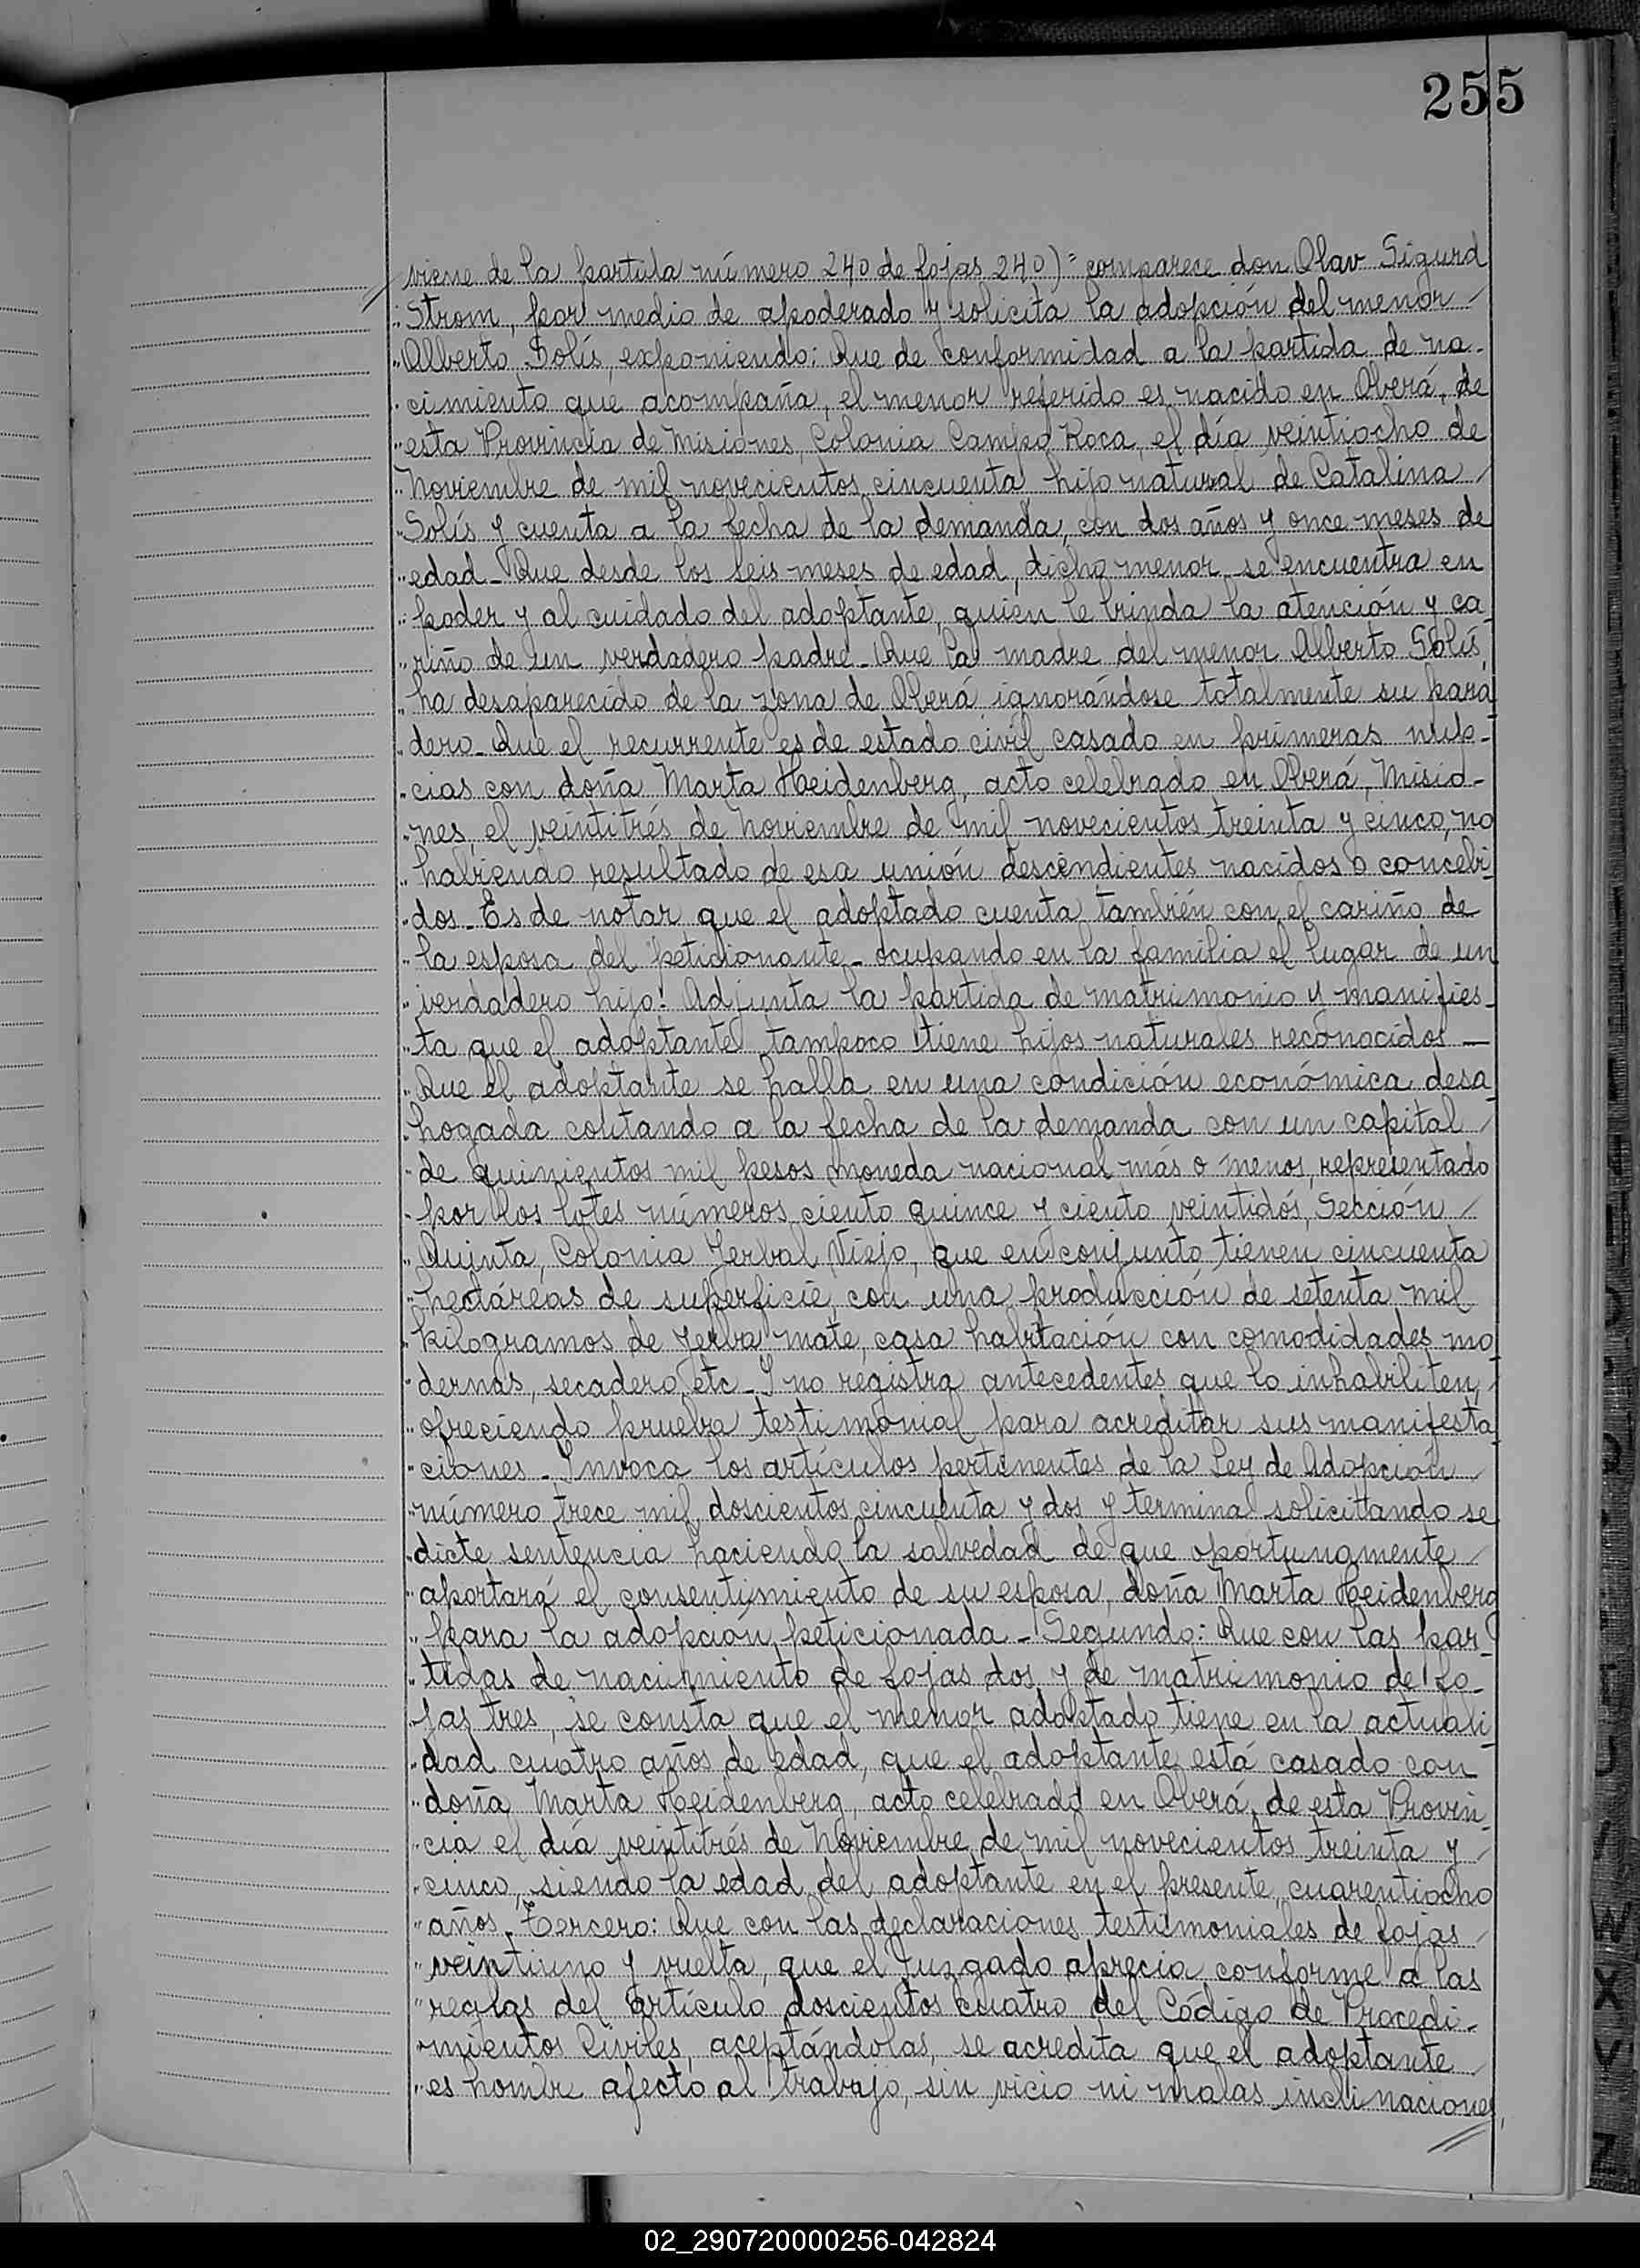 255
viene de la partida número 240 de fojas 240) = comparece don Olav Sigurd
" Strom, por medio de apoderado y solicita la adopción del menor /
" Alberto Solís, exponiendo: Que de conformidad a la partida de na-
" cimiento que acompaña, el menor referido es nacido en Oberá, de
" esta Provincia de Misiones, Colonia Campo Roca, el día veintiocho de
" Noviembre de mil novecientos cincuenta, hijo natural de Catalina /
" Solís y cuenta a la fecha de la demanda, con dos años y once meses de
" edad_ Que desde los seis meses de edad, dicho menor se encuentra en
" poder y al cuidado del adoptante, quien le brinda la atención y ca
" riño de un verdadero padre_ Que la madre del menor Alberto Solís,
" ha desaparecido de la zona de Oberá ignorándose totalmente su para
" dero_ Que el recurrente es de estado civil casado en primeras nup-
" cias con doña Marta Heidenberg, acto celebrado en Oberá, Misio-
" nes, el veintitrés de Noviembre de mil novecientos treinta y cinco, no
" habiendo resultado de esa unión descendientes nacidos o concebi
" dos_ Es de notar que el adoptado cuenta también con el cariño de
" la esposa del peticionante_ ocupando en la familia el lugar de un
" verdadero hijo. Adjunta la partida de matrimonio y manifies-
" ta que el adoptante tampoco tiene hijos naturales reconocidos —
" Que el adoptante se halla en una condición económica desa
" hogada contando a la fecha de la demanda con un capital /
" de quinientos mil pesos moneda nacional más o menos, representado
" por los lotes números ciento quince y ciento veintidós, Sección /
" Quinta, Colonia Yerbal Viejo, que en conjunto tienen cincuenta
" hectáreas de superficie, con una producción de setenta mil
" kilogramos de yerba mate, casa habitación con comodidades mo
" dernas, secadero, etc_ Y no registra antecedentes que lo inhabiliten, /
" ofreciendo prueba testimonial para acreditar sus manifesta
" ciones_ Invoca los artículos pertinentes de la Ley de Adopción /
" número trece mil doscientos cincuenta y dos y termina solicitando se
" dicte sentencia haciendo la salvedad de que oportunamente /
" aportará el consentimiento de su esposa, doña Marta Heidenberg
" para la adopción peticionada_ Segundo: Que con las par
" tidas de nacimiento de fojas dos y de matrimonio de fo-
" jas tres, se consta que el menor adoptado tiene en la actuali
" dad cuatro años de edad, que el adoptante está casado con
" doña Marta Heidenberg, acto celebrado en Oberá, de esta Provin
" cia el día veintitrés de Noviembre de mil novecientos treinta y /
" cinco, siendo la edad del adoptante en el presente, cuarentiocho
" años_ Tercero: Que con las declaraciones testimoniales de fojas /
" veintiuno y vuelta, que el Juzgado aprecia conforme a las
" reglas del artículo doscientos cuatro del Código de Procedi-
" mientos Civiles, aceptándolas, se acredita que el adoptante /
" es hombre afecto al trabajo, sin vicio ni malas inclinaciones,
//
02_290720000256-042824